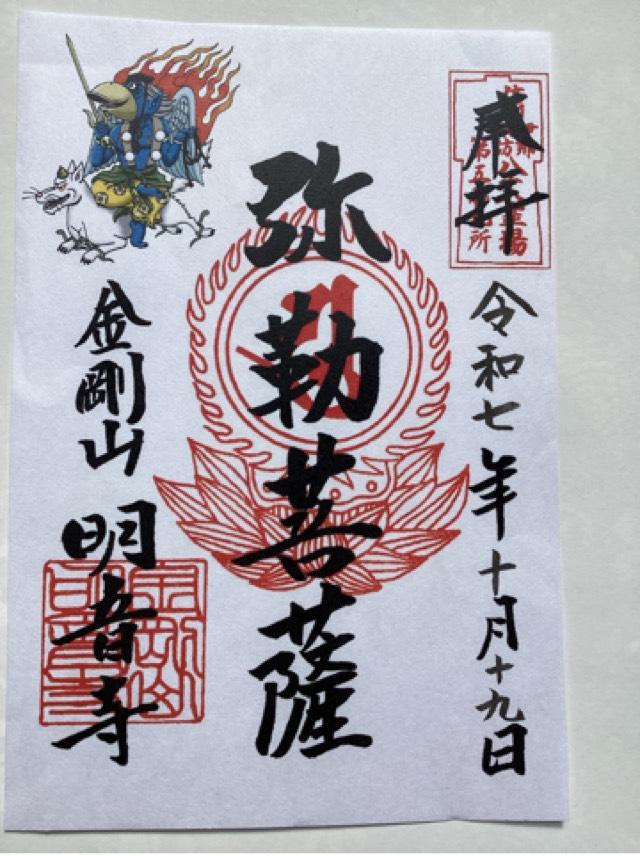 奉拝
令和七年十月十九日
弥勒菩薩
金剛山 明音寺